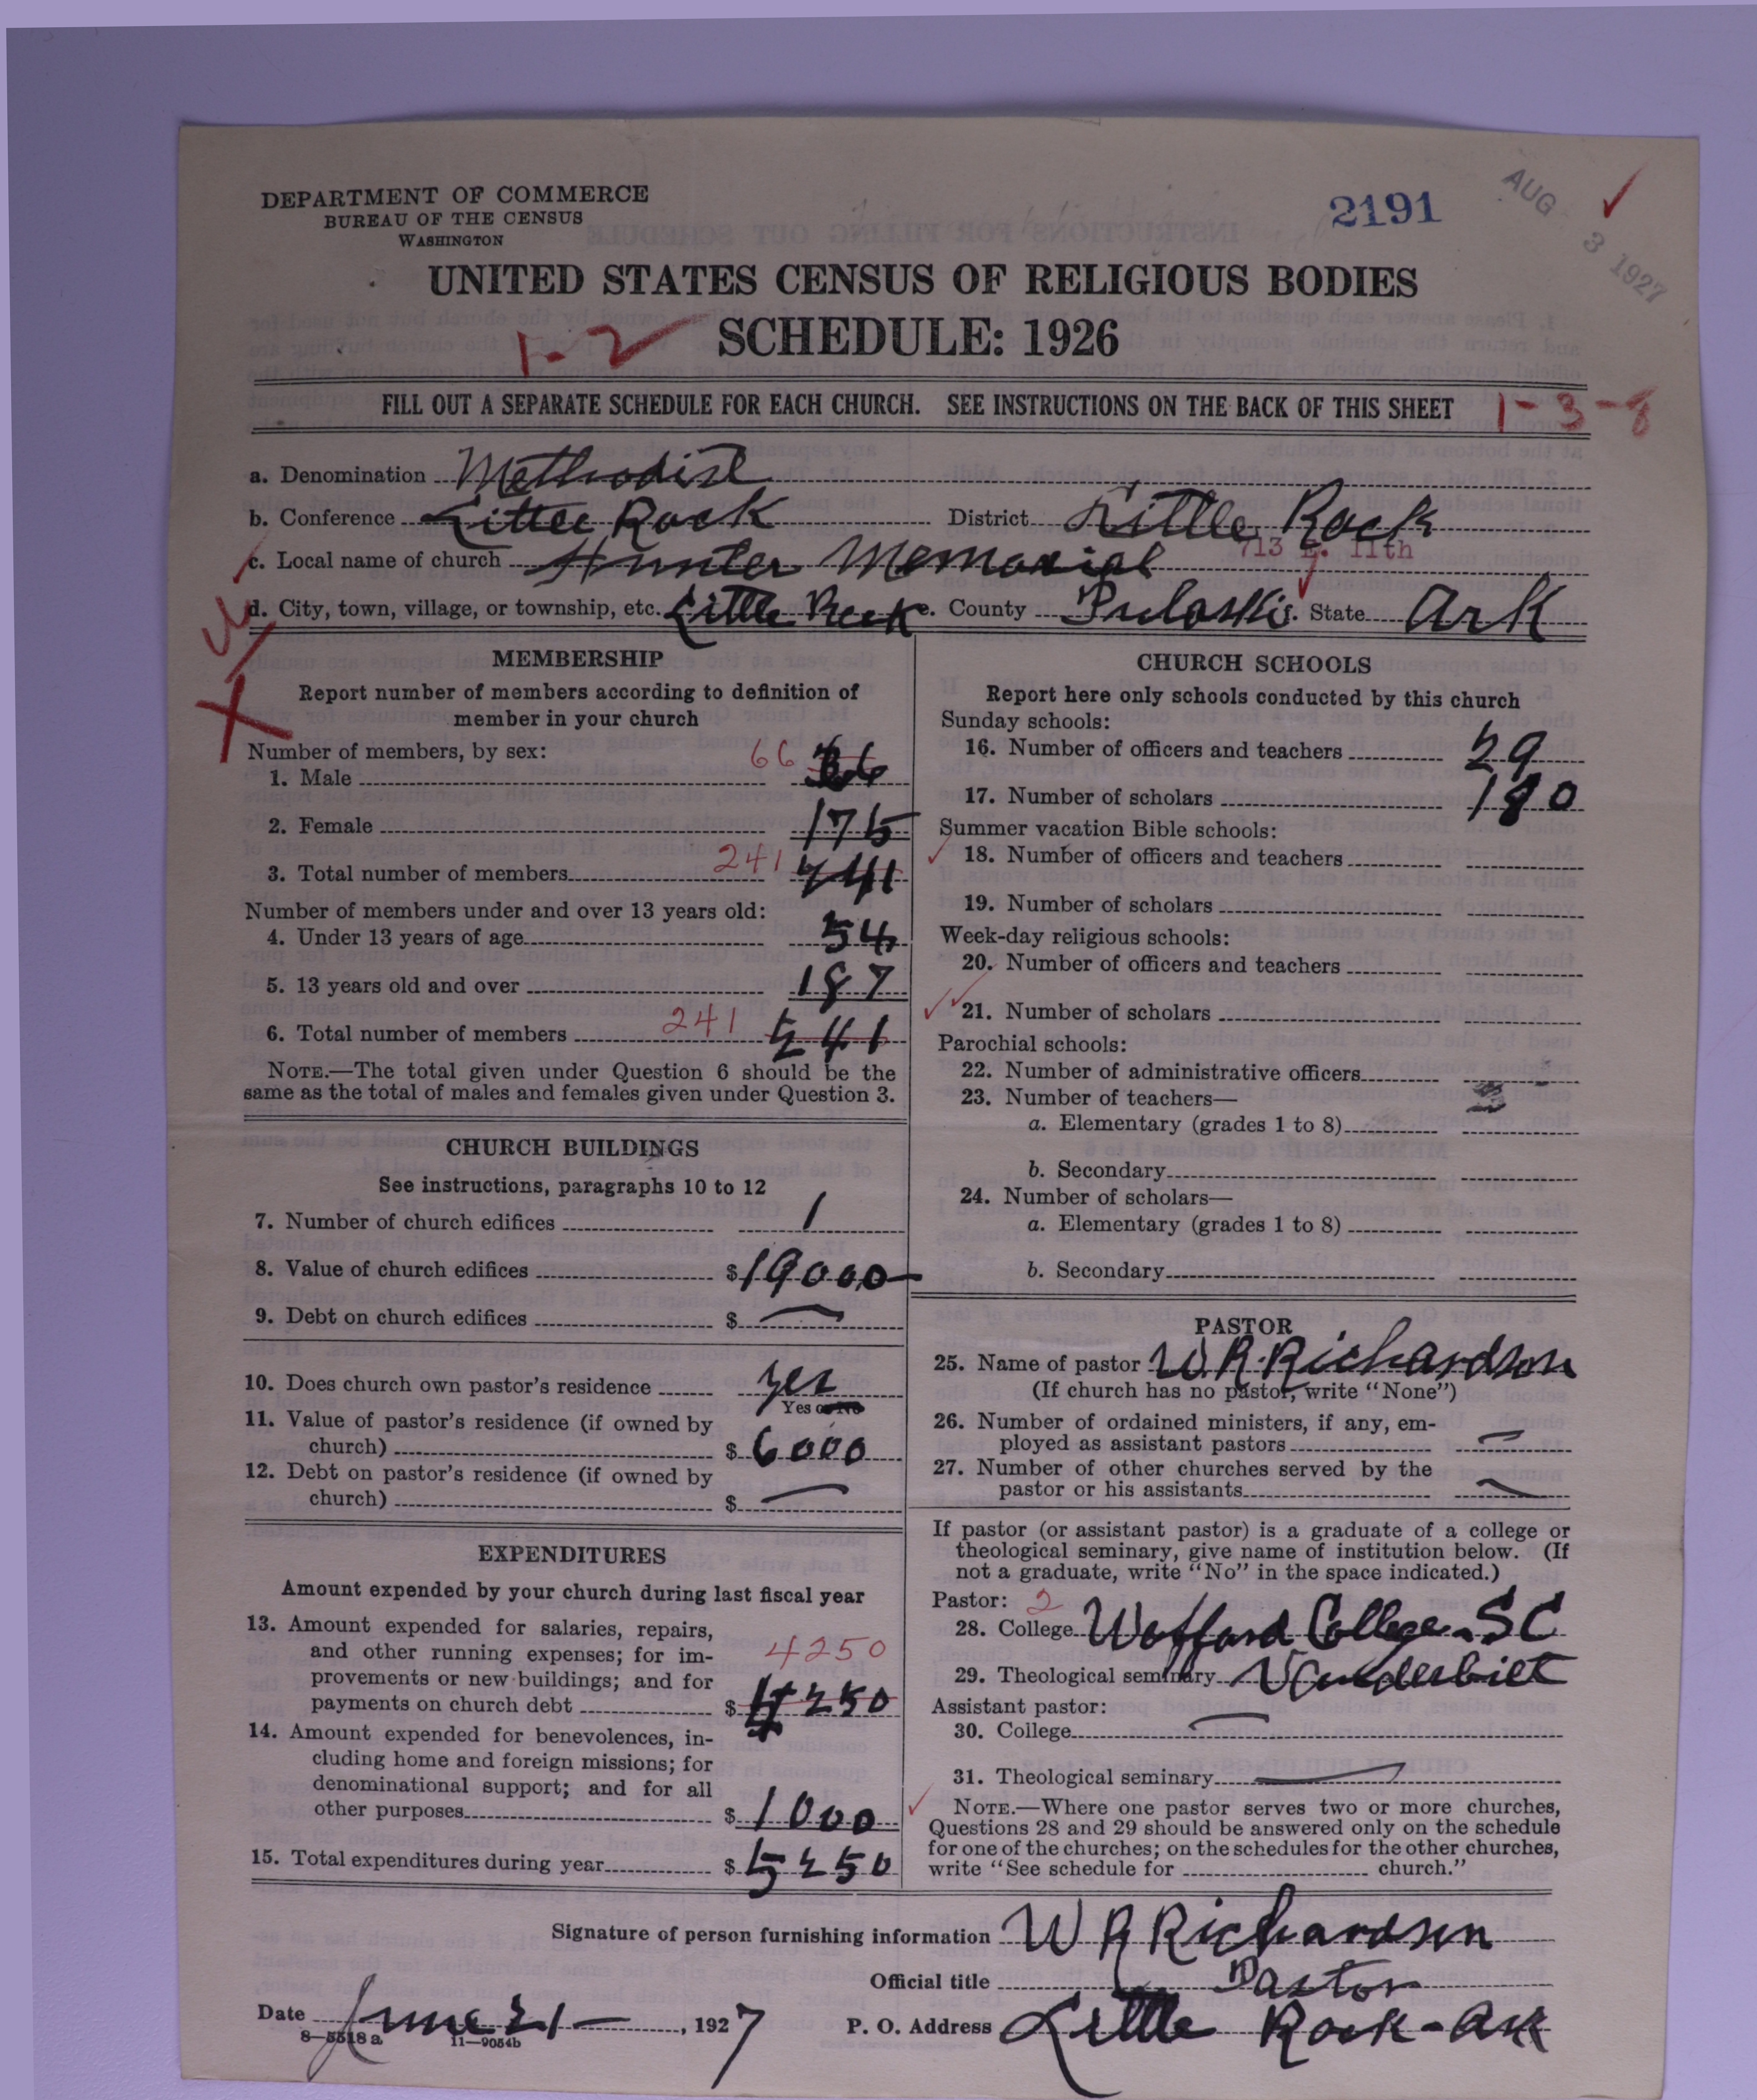 DEPARTMENT OF COMMERCE
BUREAU OF THE CENSUS
WASHINGTON
2191
AUG 3 1927
UNITED STATES CENSUS OF RELIGIOUS BODIES
1-2 SCHEDULE: 1926
FILL OUT A SEPARATE SCHEDULE FOR EACH CHURCH. SEE INSTRUCTIONS ON THE BACK OF THIS SHEET 1-3-8
a. Denomination Methodist
b. Conference Little Rock District Little Rock
c. Local name of church Hunter Memorial 713 E. 11th
d. City, town, village, or township, etc. Little Rock e. County Pulaski f. State Ark
MEMBERSHIP
Report number of members according to definition of
member in your church
Number of members, by sex:
1. Male 66 66
2. Female 175
3. Total number of members 241 241
Number of members under and over 13 years old:
4. Under 13 years of age 54
5. 13 years old and over 187
6. Total number of members 241 241
NOTE.—The total given under Question 6 should be the
same as the total of males and females given under Question 3.
CHURCH BUILDINGS
See instructions, paragraphs 10 to 12
7. Number of church edifices 1
8. Value of church edifices $19000
9. Debt on church edifices $ —
10. Does church own pastor's residence yes
Yes or No
11. Value of pastor's residence (if owned by
church) $6000
12. Debt on pastor's residence (if owned by
church) $ —
EXPENDITURES
Amount expended by your church during last fiscal year
13. Amount expended for salaries, repairs,
and other running expenses; for im-
provements or new buildings; and for 4250
payments on church debt $4250
14. Amount expended for benevolences, in-
cluding home and foreign missions; for
denominational support; and for all
other purposes $1000
15. Total expenditures during year $5250
CHURCH SCHOOLS
Report here only schools conducted by this church
Sunday schools:
16. Number of officers and teachers 29
17. Number of scholars 180
Summer vacation Bible schools:
18. Number of officers and teachers
19. Number of scholars
Week-day religious schools:
20. Number of officers and teachers
21. Number of scholars
Parochial schools:
22. Number of administrative officers
23. Number of teachers—
a. Elementary (grades 1 to 8)
b. Secondary
24. Number of scholars—
a. Elementary (grades 1 to 8)
b. Secondary
PASTOR
25. Name of pastor W. R. Richardson
(If church has no pastor, write "None")
26. Number of ordained ministers, if any, em-
ployed as assistant pastors —
27. Number of other churches served by the
pastor or his assistants —
If pastor (or assistant pastor) is a graduate of a college or
theological seminary, give name of institution below. (If
not a graduate, write "No" in the space indicated.)
Pastor: 2
28. College Wofford College. SC
29. Theological seminary Vanderbilt
Assistant pastor:
30. College —
31. Theological seminary —
NOTE.—Where one pastor serves two or more churches,
Questions 28 and 29 should be answered only on the schedule
for one of the churches; on the schedules for the other churches,
write "See schedule for church."
Signature of person furnishing information W R Richardson
Official title Pastor
Date June 21 —, 1927 P. O. Address Little Rock - Ark
8—5518 a 11—9054b